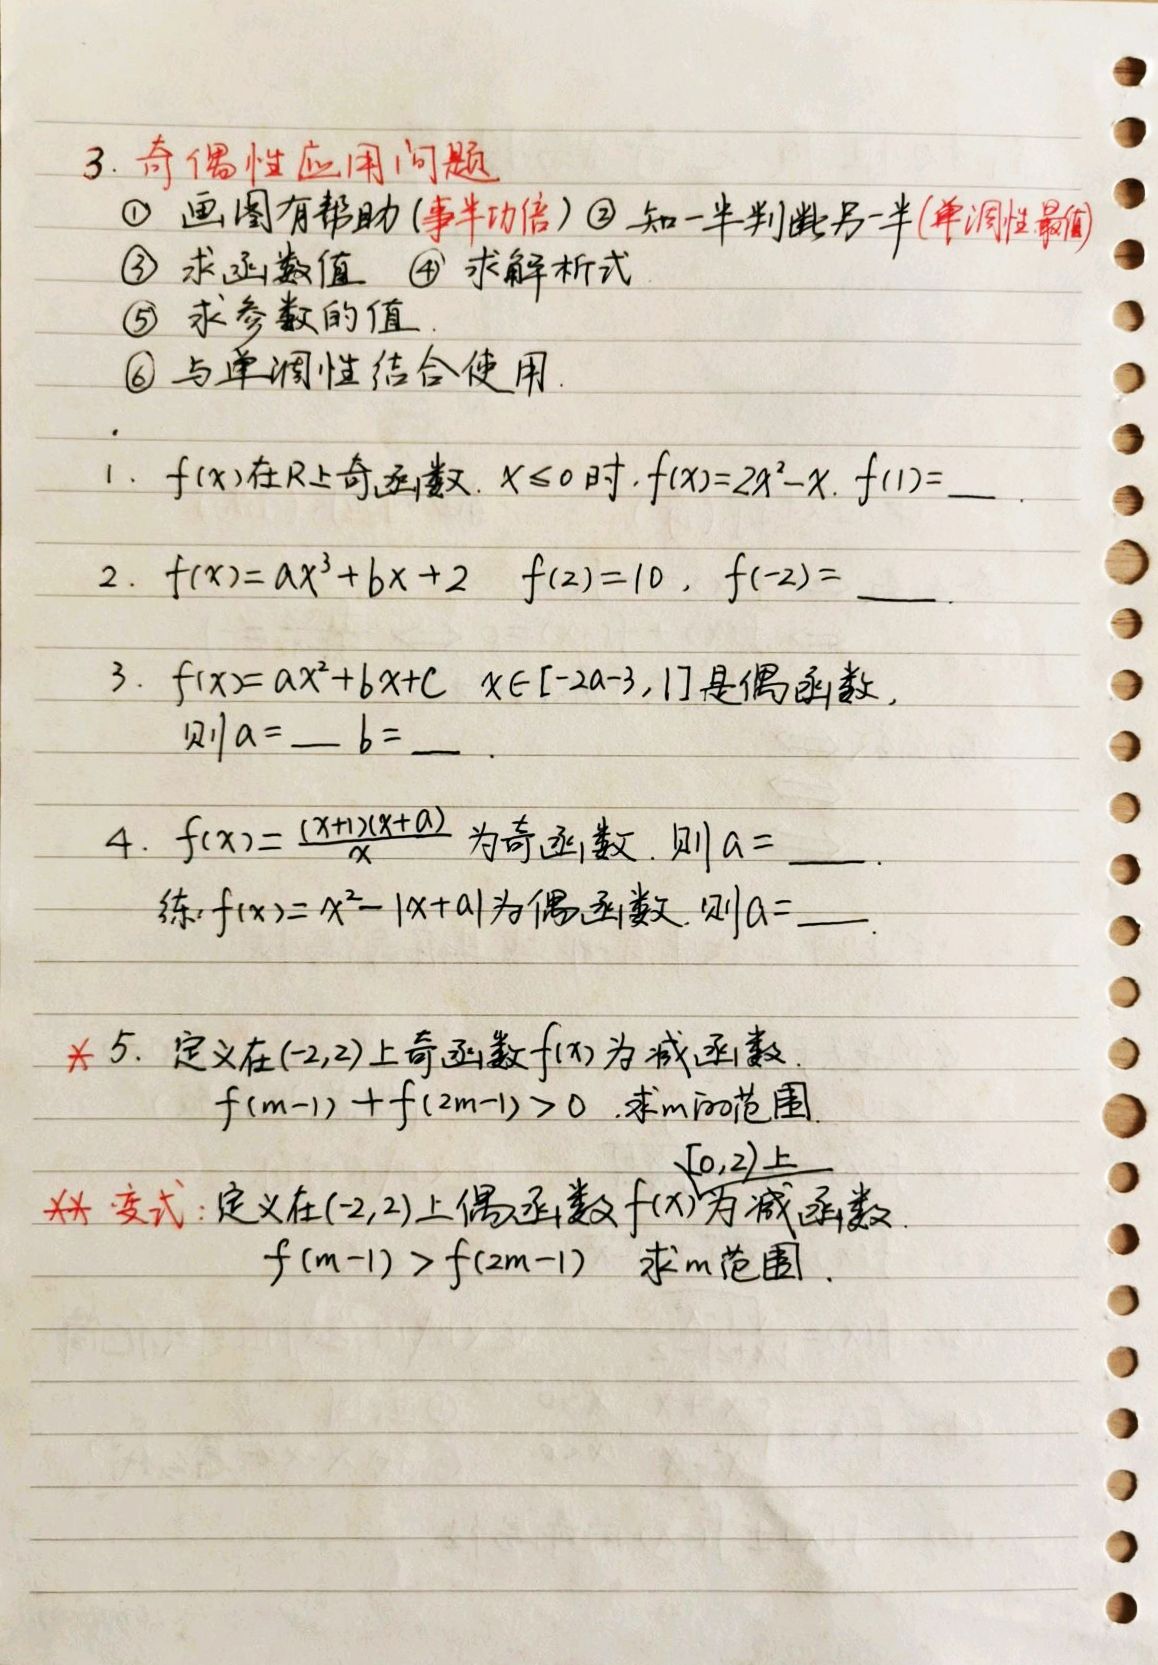 3. 奇偶性应用问题
① 画图有帮助(事半功倍) ② 知一半判断另一半(单调性.最值)
③ 求函数值 ④ 求解析式
⑤ 求参数的值.
⑥ 与单调性结合使用.
1. f(x)在R上奇函数. x≤0时, f(x)=2x²-x. f(1)=__.
2. f(x)=ax³+bx+2 f(2)=10, f(-2)=___.
3. f(x)=ax²+bx+c x∈[-2a-3,1]是偶函数,
则a=__ b=__.
4. f(x)=\frac{(x+1)(x+a)}{x} 为奇函数. 则a=___.
练: f(x)=x²-|x+a|为偶函数.则a=___.
* 5. 定义在(-2,2)上奇函数f(x)为减函数.
f(m-1)+f(2m-1)>0 .求m的范围.
[0,2)上
** 变式:定义在(-2,2)上偶函数f(x)为减函数.
f(m-1)>f(2m-1) 求m范围.